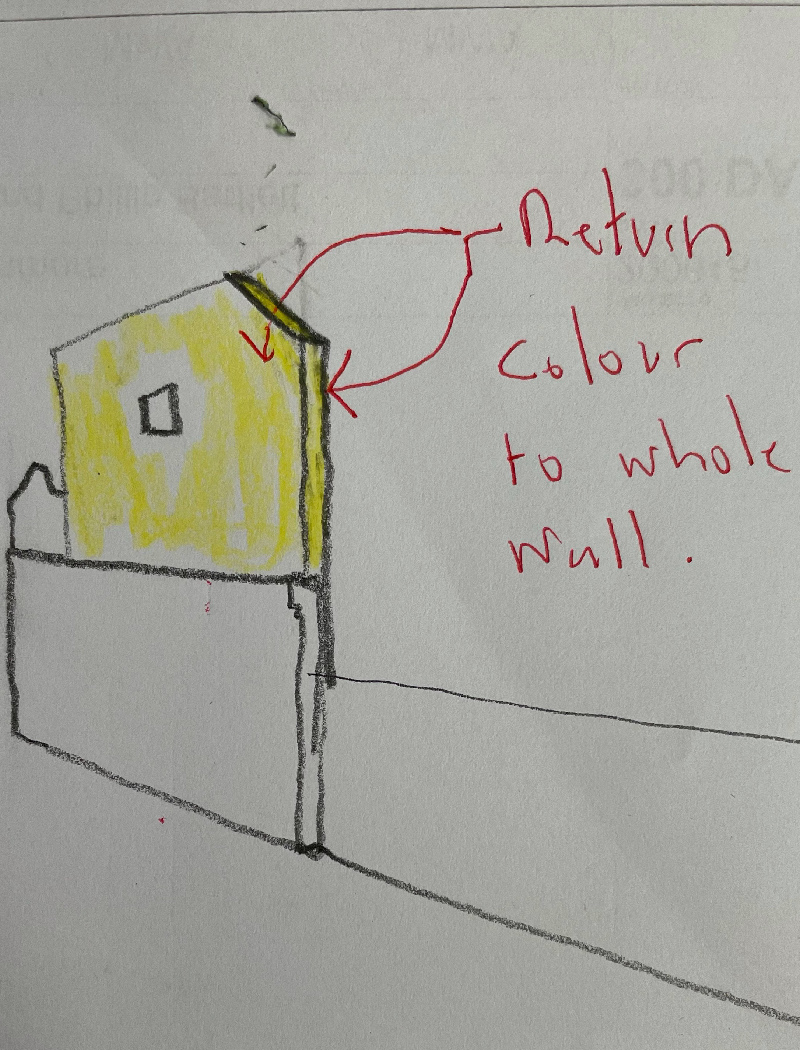 Return
colour
to whole
wall.